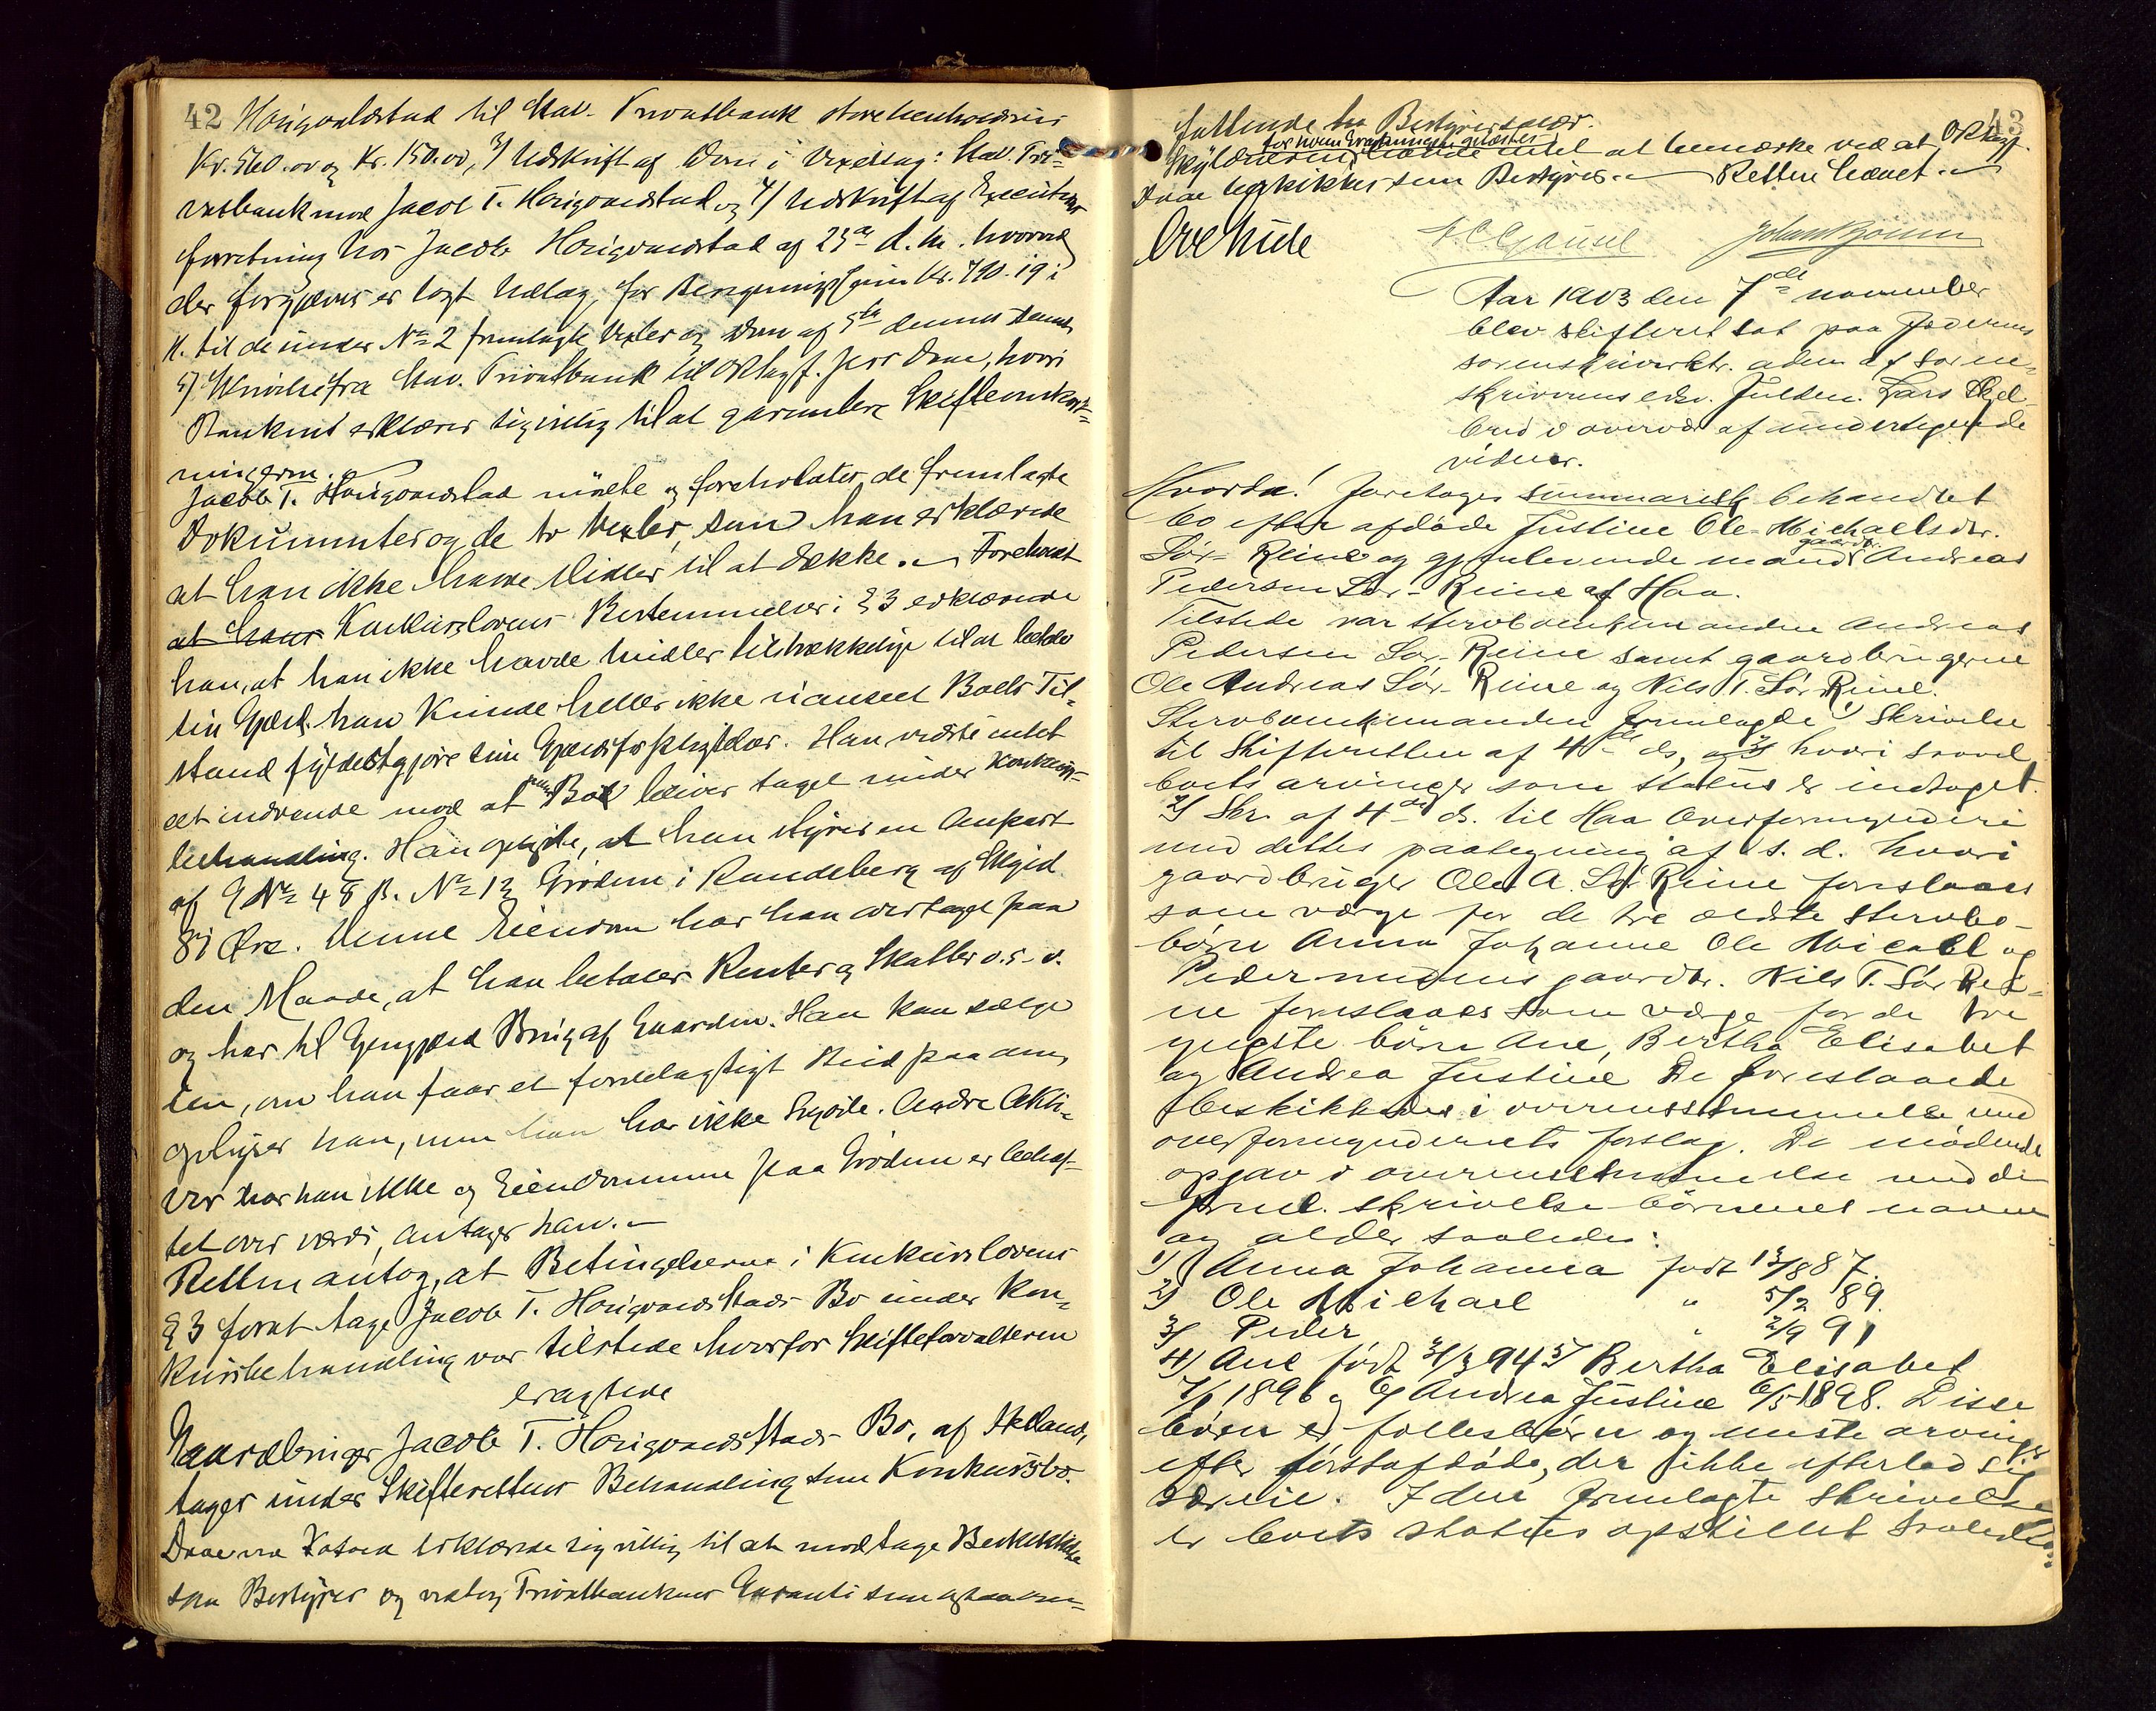 42 Haugvaldstad til Stav. Privatbank store henholdsvis
Kr. 560.00 og Kr. 150.00, 3/ Udskrift af Dom i Vexelsag: Stav. Pri-
vatbank mod Jacob T. Haugvaldstad og 4/ Udskrift af Executions
forretning hos Jacob Haugvaldstad af 23de d. m. hvorved
der forgjæves er søgt Udlæg for Kr. 790.19 i
H. til de under No 2 fremlagte Vexler og Dom af 5te dennes
5) Skrivelse fra Stav. Privatbank til O.R.sagf. Jess Daae, hvori
Banken erklærer sig villig til at garantere Skifteomkost-
ningerne.
Jacob T. Haugvaldstad mødte og foreholdtes de fremlagte
Dokumenter og de to Vexler, som han erklærede
at han ikke havde Midler til at dække. Foreholdt
at hans Konkurslovens Bestemmelser i § 3 erklærede
han, at han ikke havde Midler tilstrækkelige til at betale
sin Gjæld. han kunde heller ikke uanseet Boets Til-
stand fyldestgjøre sine Gjældsforpligtelser. Han vidste intet
at indvende mod at hans Bo bliver taget under Konkurs-
behandling. Han oplyste, at han styrer en Anpart
af G No 48 B. No 12 Grødem i Randeberg af Skyld
81 Øre. Denne Eiendom har han overtaget paa
den Maade, at han betaler Renter og Skatter o.s.v.
og har til Gjengjæld Brug af Gaarden. Han kan sælge
den, om han faar et fordelagtigt Bud paa den,
oplyser han, men han har ikke Skjøde. Andre Akti-
ver har han ikke og Eiendommen paa Grødem er behæf-
tet over værdi, antager han.
Retten antog, at Betingelserne i Konkurslovens
§ 3 forat tage Jacob T. Haugvaldstads Bo under Kon-
kursbehandling var tilstede hvorfor Skifteforvalteren
eragtede
Gaardbruger Jacob T. Haugvaldstads Bo, af
tages under Skifterettens Behandling som Konkursbo.
Daae var erklærede sig villig til at modtage Beskikkelse
som Bestyrer og vedtog Privatbankens Garanti som
43
fattende hans Bestyrersalær.
for hvem Eragtningen oplæstes
Skyldneren havde intet at bemærke ved at O.R.sagf.
Daae beskikkes som Bestyrer. Retten hævet.
Ove Hude
Gausel Johan
Aar 1903 den 7de november
blev skifteret sat paa Jæderens
sorenskriverktr. adm. af soren-
skriverens edsv. fuldm. Lars Skjel-
bred i overvær af undertegnede
vidner.
Hvorda! foretoges summarisk behandlet
bo efter afdøde Justine Ole-Michaelsdr.
Sør-Reime og gjenlevende mand gaardbr. Andreas
Pedersen Sør-Reime af Haa.
Tilstede var stervboenkemanden Andreas
Pedersen Sør-Reime samt gaardbrugerne
Ole Andreas Sør-Reime og Nils T. Sør Reime.
Stervboenkemanden fremlagde 1) skrivelse
til Skifteretten af 4de ds, hvori saavel
boets arvinger som status er indtaget.
2) Skr. af 4de ds. til Haa Overformynderi
med dettes paategning af s. d. hvori
gaardbruger Ole A. Sør Reime foreslaaes
som værge for de tre ældste stervbo-
børn Anna Johanne Ole Micael og
Peder medens gaardbr. Nils T. Sør Rei-
me foreslaaes som værge for de tre
yngste børn Ane, Bertha Elisabet
og Andrea Justine De foreslaaede
beskikkedes i overensstemmelse med
overformynderiets forslag. De mødende
opgav i overensstemmelse med den
freml. skrivelse børnenes navne
og alder saaledes:
1) Anna Johanna født 13/8 87.
2) Ole Michael " 5/2 89.
3) Peder " 2/9 91
4) Ane født 31/3 94 5) Bertha Elisabet
7/6 1896 og 6) Andrea Justine 6/5 1898. Disse
børn er fællesbørn og eneste arvinger
efter førstafdøde, der ikke efterlod sig
særeie. I den fremlagte skrivelse
er boets status opstillet saaledes: